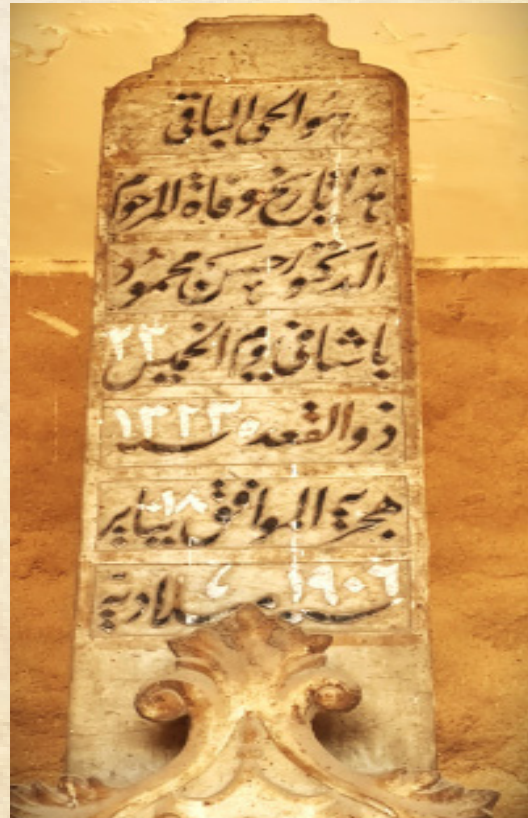 هو الحي الباقي
هذا تاريخ وفاة المرحوم
الدكتور حسن محمود
باشا في يوم الخميس ٢٣
ذو القعدة سنة ١٣٢٣
هجرية الموافق ١٨ يناير
سنة ١٩٠٦ ميلادية